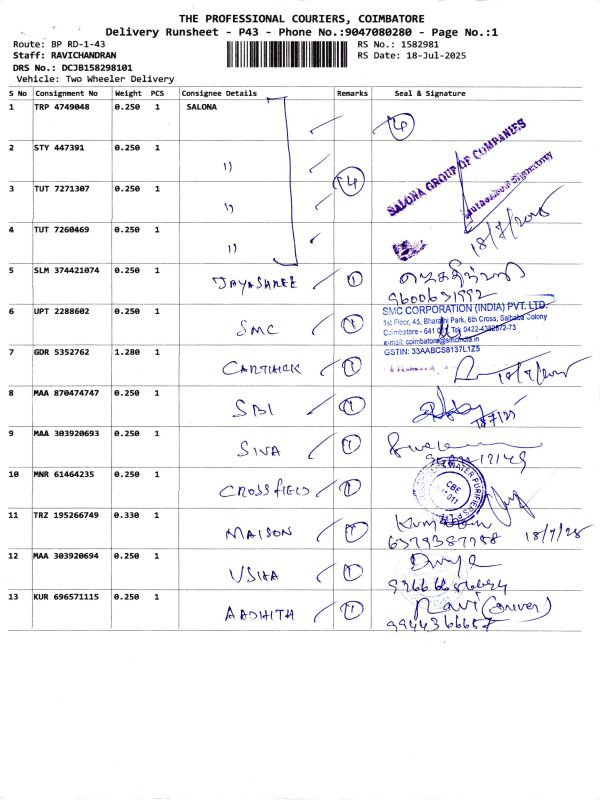 THE PROFESSIONAL COURIERS, COIMBATORE
Delivery Runsheet - P43 - Phone No.:9047080280 - Page No.:1
Route: BP RD-1-43
RS No.: 1582981
Staff: RAVICHANDRAN
RS Date: 18-Jul-2025
DRS No.: DCJB158298101
Vehicle: Two Wheeler Delivery
S No Consignment No Weight PCS Consignee Details Remarks Seal & Signature
1 TRP 4749048 0.250 1 SALONA 4
2 STY 447391 0.250 1 " 4
SALONA GROUP OF COMPANIES
Authorised Signatory
3 TUT 7271307 0.250 1 "
4 TUT 7260469 0.250 1 " 18/7/2025
5 SLM 374421074 0.250 1 JAYASHREE 1
9600631992
6 UPT 2288602 0.250 1 SMC 1
SMC CORPORATION (INDIA) PVT. LTD.
1st Floor, 45, Bharathi Park, 6th Cross, Saibaba Colony
Coimbatore - 641 Tel 0422-
e-mail: coimbatore@smcindia.in
GSTIN: 33AABCS8137L1Z5
7 GDR 5352762 1.280 1 CARTHICK 1 18/7/2025
8 MAA 870474747 0.250 1 SBI 1 18/7/25
9 MAA 303920693 0.250 1 SIVA 1
10 MNR 61464235 0.250 1 CROSSFIELD 1
WATER PURIFIERS
CBE
11 TRZ 195266749 0.330 1 MAISON 1
18/7/25
12 MAA 303920694 0.250 1 USHA 1 Divya
13 KUR 696571115 0.250 1 AADHITH 1 Ravi (Driver)
9944366657